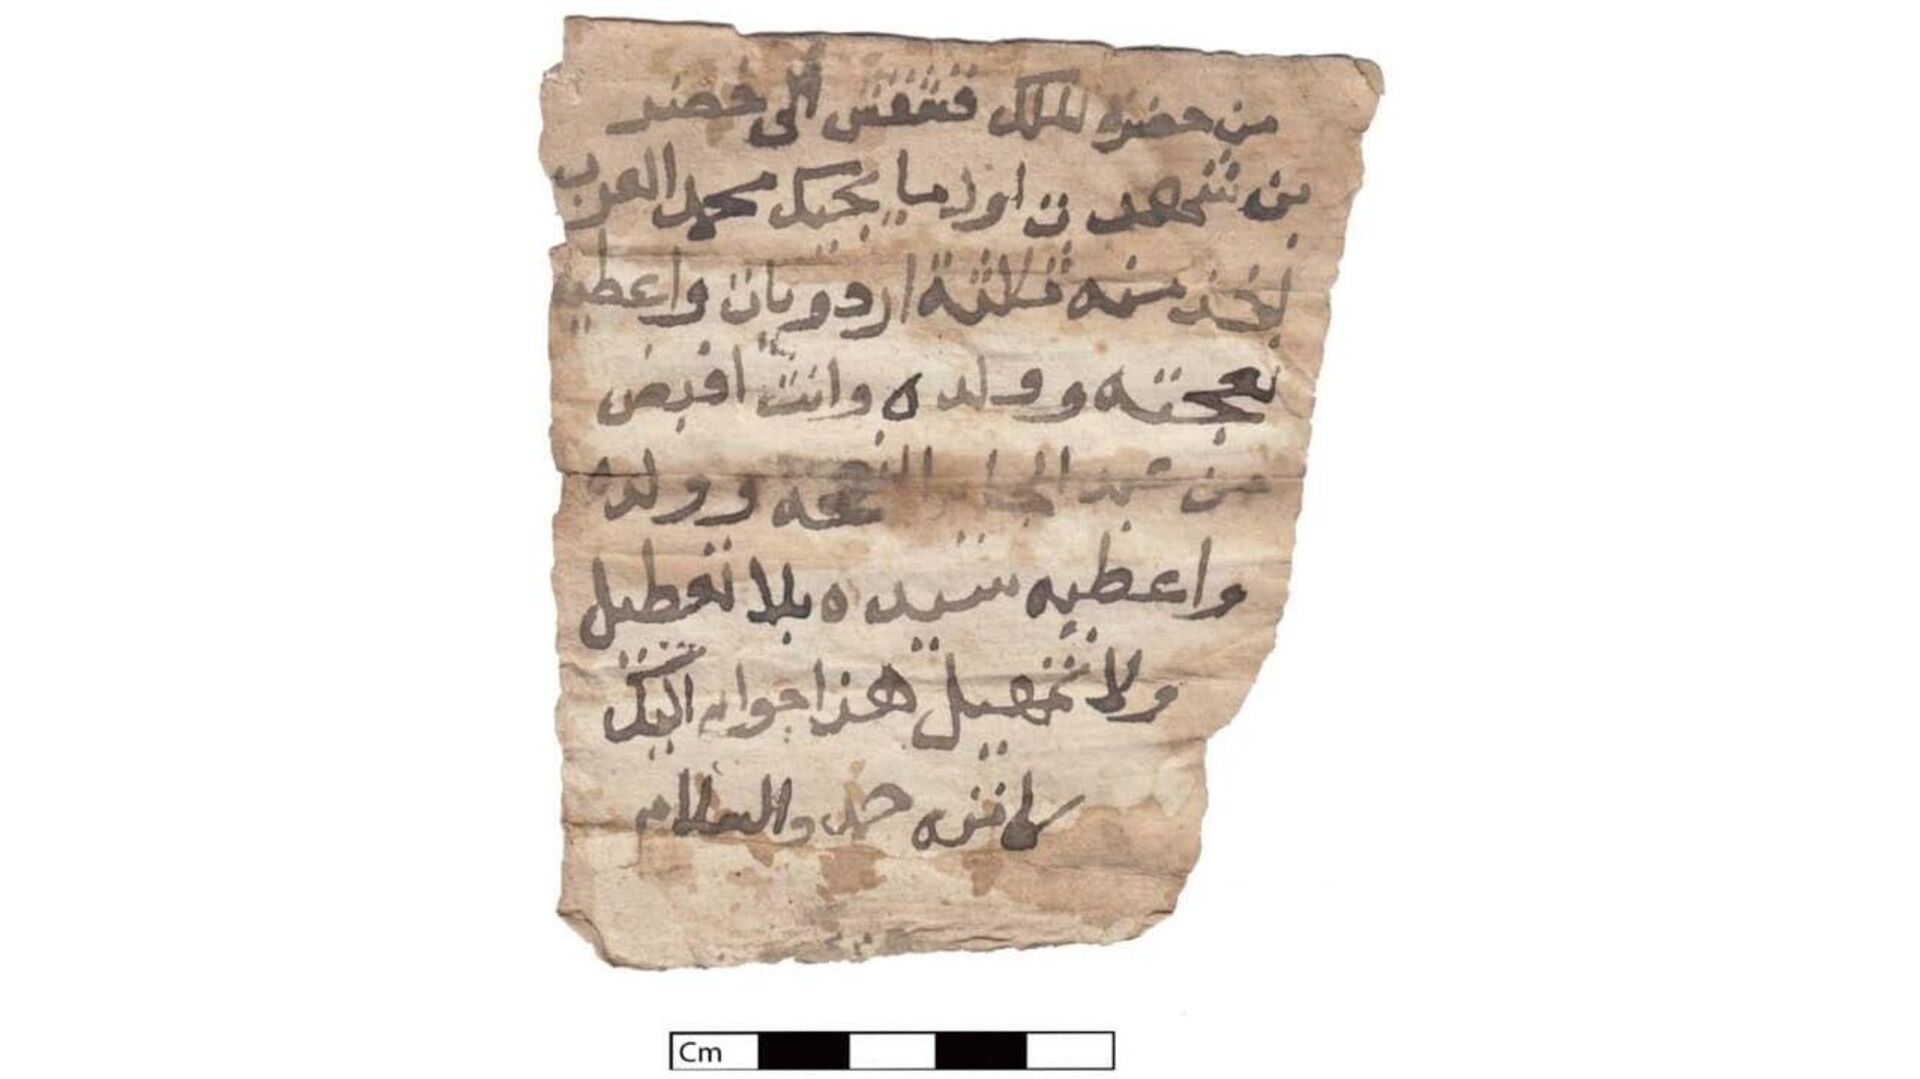 من حضره الملك قشقش الى خضر
بن شهدت اول ما يجيك محمد العرب
تخذ منه ثلاثة اردويات واعطيه
نعجته وولده وانت اقبض
من عبد الجابر النعجه وولده
واعطيه سيده بلا تعطيل
ولا تمهيل هذا جوابي اليك
حمد والسلام
Cm